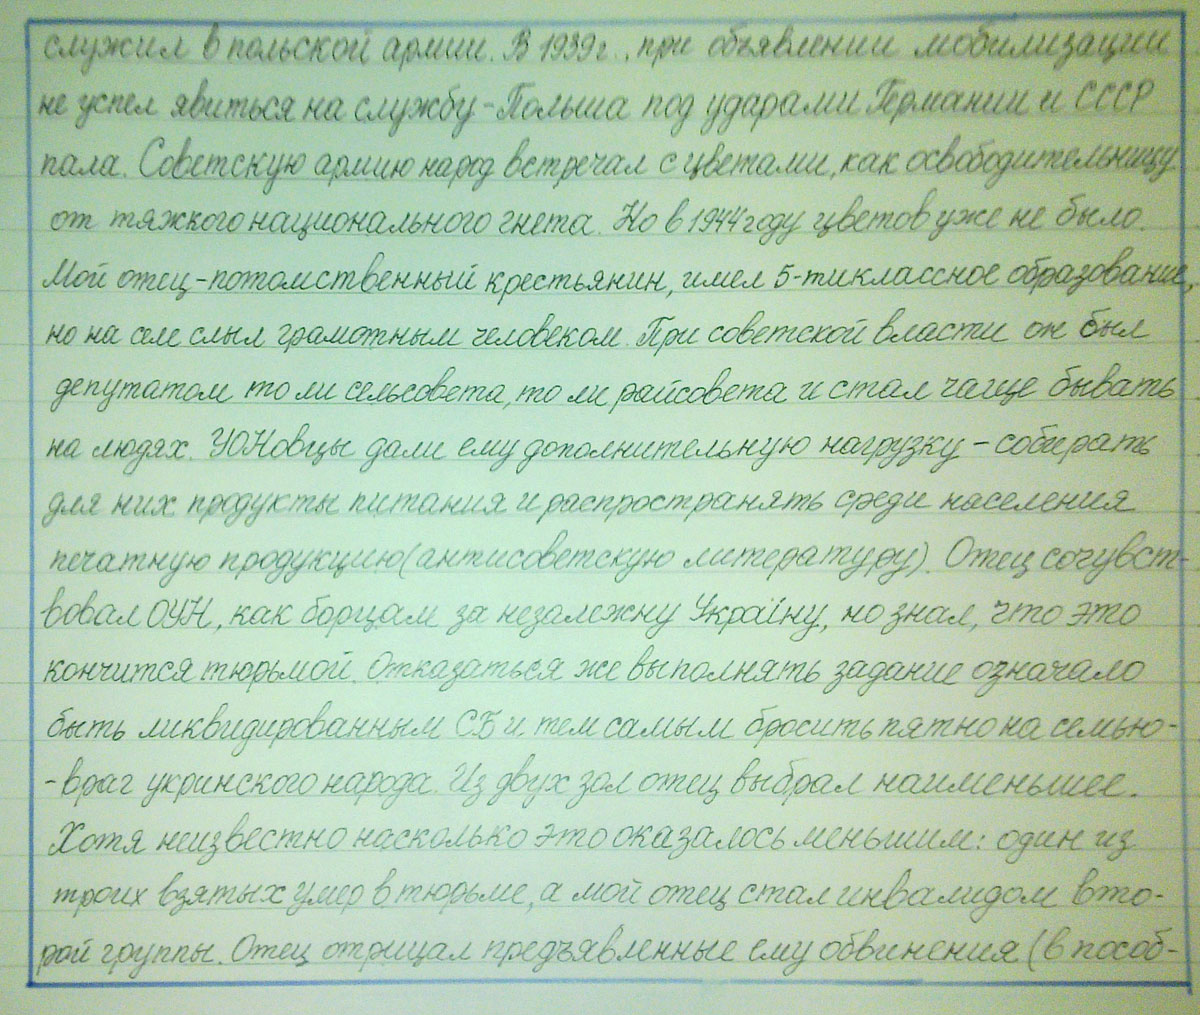 служил в польской армии. В 1939г., при объявлении мобилизации
не успел явиться на службу - Польша под ударами Германии и СССР
пала. Советскую армию народ встречал с цветами, как освободительницу
от тяжкого национального гнета. Но в 1944 году цветов уже не было.
Мой отец - потомственный крестьянин, имел 5-тиклассное образование,
но на селе слыл грамотным человеком. При советской власти он был
депутатом то ли сельсовета, то ли райсовета и стал чаще бывать
на людях. УОНовцы дали ему дополнительную нагрузку - собирать
для них продукты питания и распространять среди населения
печатную продукцию (антисоветскую литературу). Отец сочувст-
вовал ОУН, как борцам за незалежну Україну, но знал, что это
кончится тюрьмой. Отказаться же выполнять задание означало
быть ликвидированным СБ и тем самым бросить пятно на семью -
- враг укринского народа. Из двух зол отец выбрал наименьшее.
Хотя неизвестно насколько это оказалось меньшим: один из
троих взятых умер в тюрьме, а мой отец стал инвалидом вто-
рой группы. Отец отрицал предъявленные ему обвинения (в пособ-